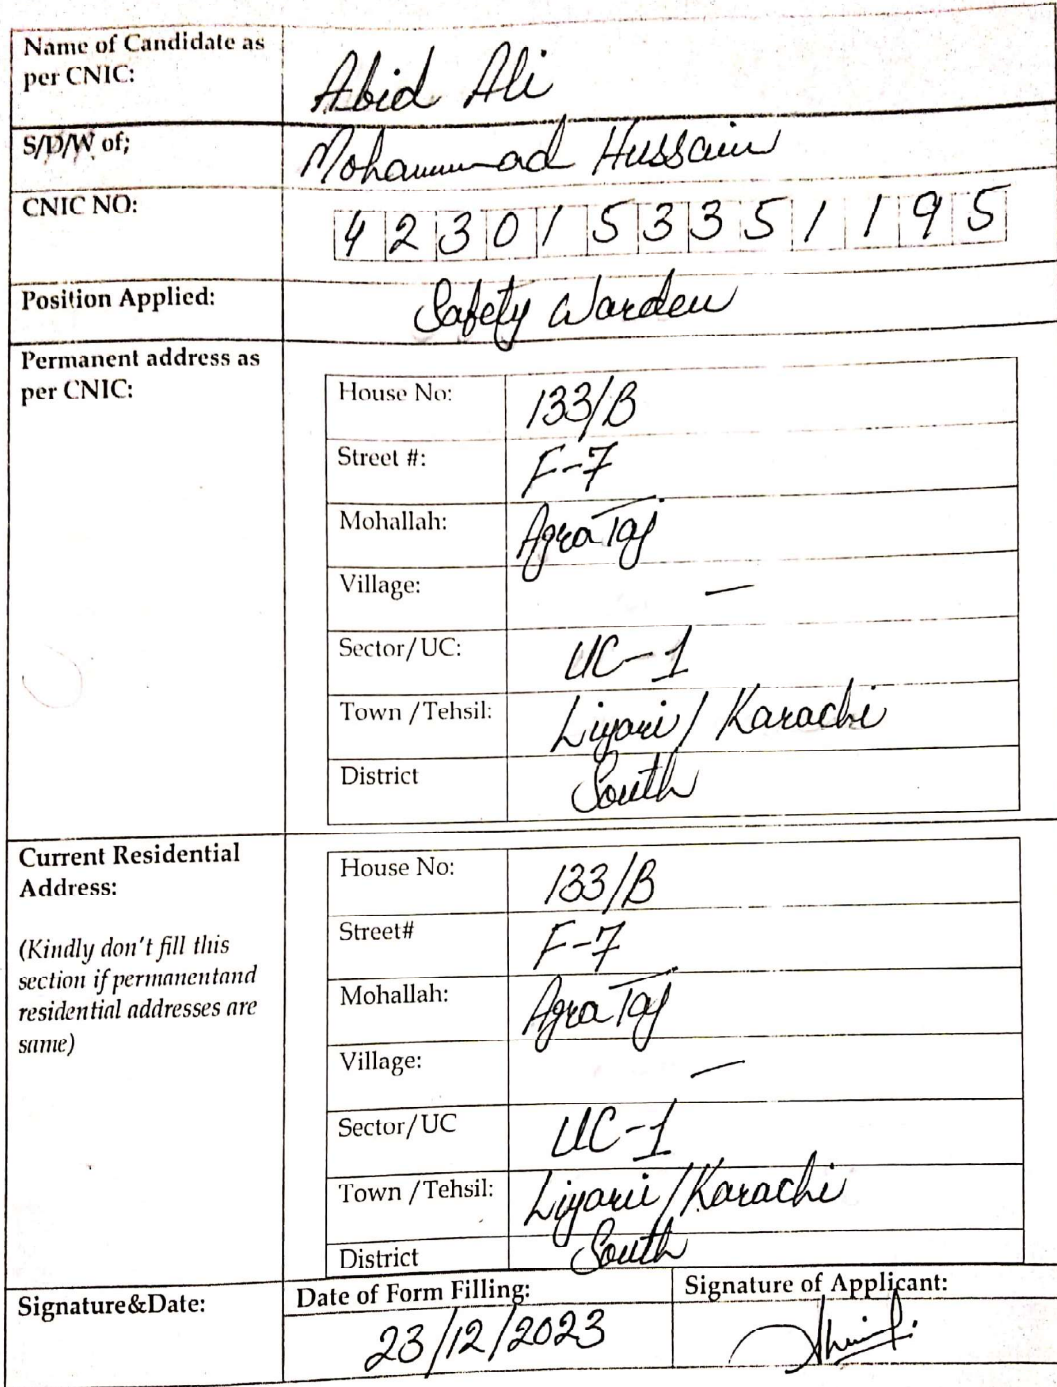 Name of Candidate as per CNIC: Abid Ali
S/D/W of; Mohammad Hussain
CNIC NO: 4 2 3 0 1 5 3 3 5 1 1 9 5
Position Applied: Safety Warden
Permanent address as per CNIC:
House No: 133/B
Street #: F-7
Mohallah: Agra Taj
Village: —
Sector/UC: UC-1
Town /Tehsil: Liyari/ Karachi
District South
Current Residential Address:
(Kindly don't fill this section if permanentand residential addresses are same)
House No: 133/B
Street# F-7
Mohallah: Agra Taj
Village: —
Sector/UC UC-1
Town /Tehsil: Liyarii /Karachi
District South
Signature&Date:
Date of Form Filling: 23/12/2023
Signature of Applicant: